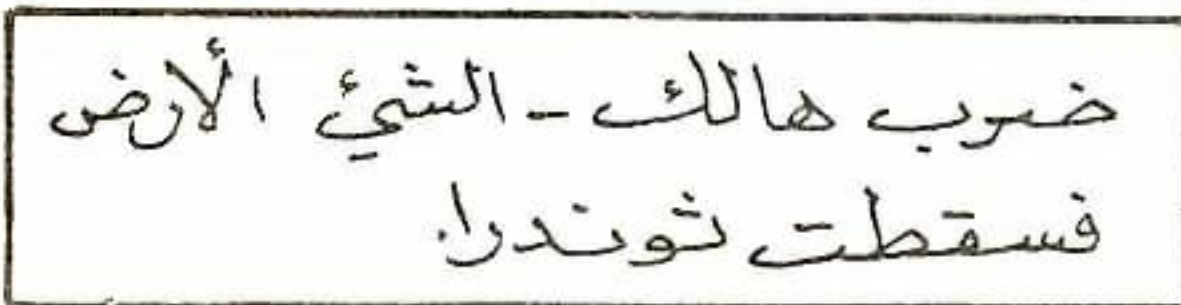 ضرب هالك - الشئ الأرض
فسقطت ثوندرا.